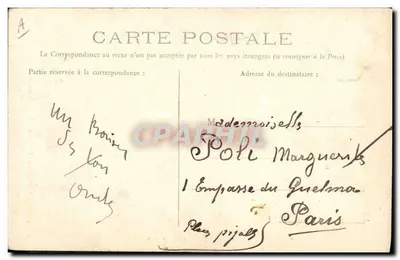 A
CARTE POSTALE
La Correspondance au recto n'est pas acceptée par tous les pays étrangers (se renseigner à la Poste)
Partie réservée à la correspondance :
Adresse du destinataire :
Mademoiselle
Poli Marguerite
1 Empasse du Guelma
Paris
Place pigalle
un
De ton
oncle
CPARAMA